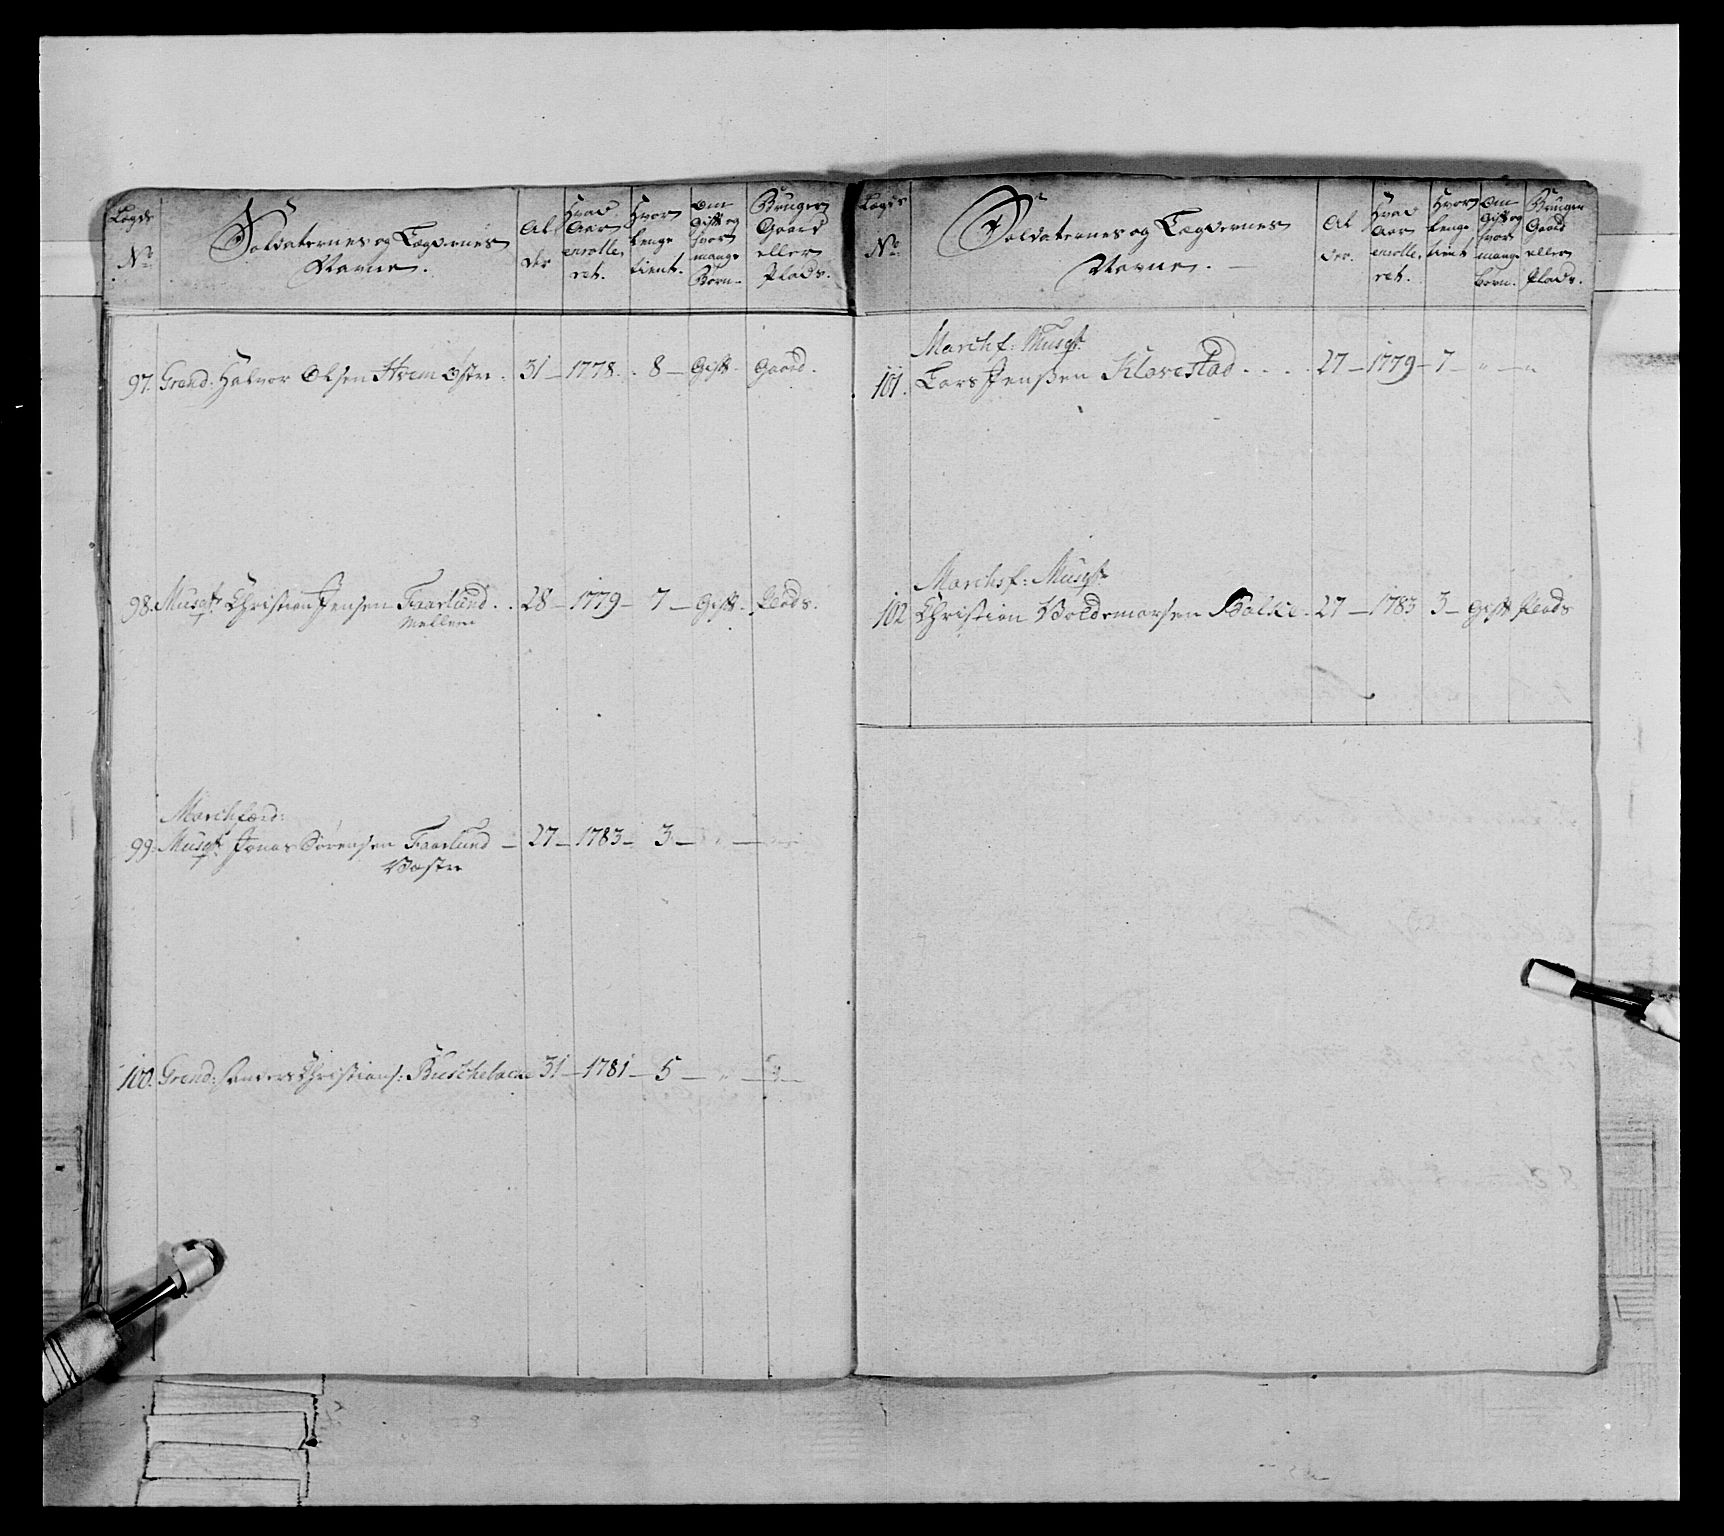 Lægds No Soldaternes og Lægdernes Navne. Al der Hvad Aar enrolle ret. Hvor lenge tient. Om Gift og hvor mange Børn. Bruger Gaard eller Plads.
97. Grend: Halvor Olsen Hvem Østre. 31 – 1778. 8 – Gift. Gaard.
98. Musqt: Christian Jensen Faarlund. 28 – 1779 – 7 – Gift. Plads.
Mellem
Marchfærd:
99. Musqt: Jonas Sørensen Faarlund – 27 – 1783 – 3 – " – "
Vestre
100. Grend: Anders Christians: 31 – 1781 – 5 – " – "
Lægds No Soldaternes og Lægdernes Navne. – Al der. Hvad Aar enrolle ret. Hvor lenge tient Om Gift og hvor mange Børn. Bruger Gaard eller Plads.
Marchf: Musqt:
101. Lars Jensen Klavestad . . . . 27 – 1779 – 7 – " – "
Marchf: Musqt:
102 Christian Voldemarsen Balke. 27 – 1783 3 – Gift Plads